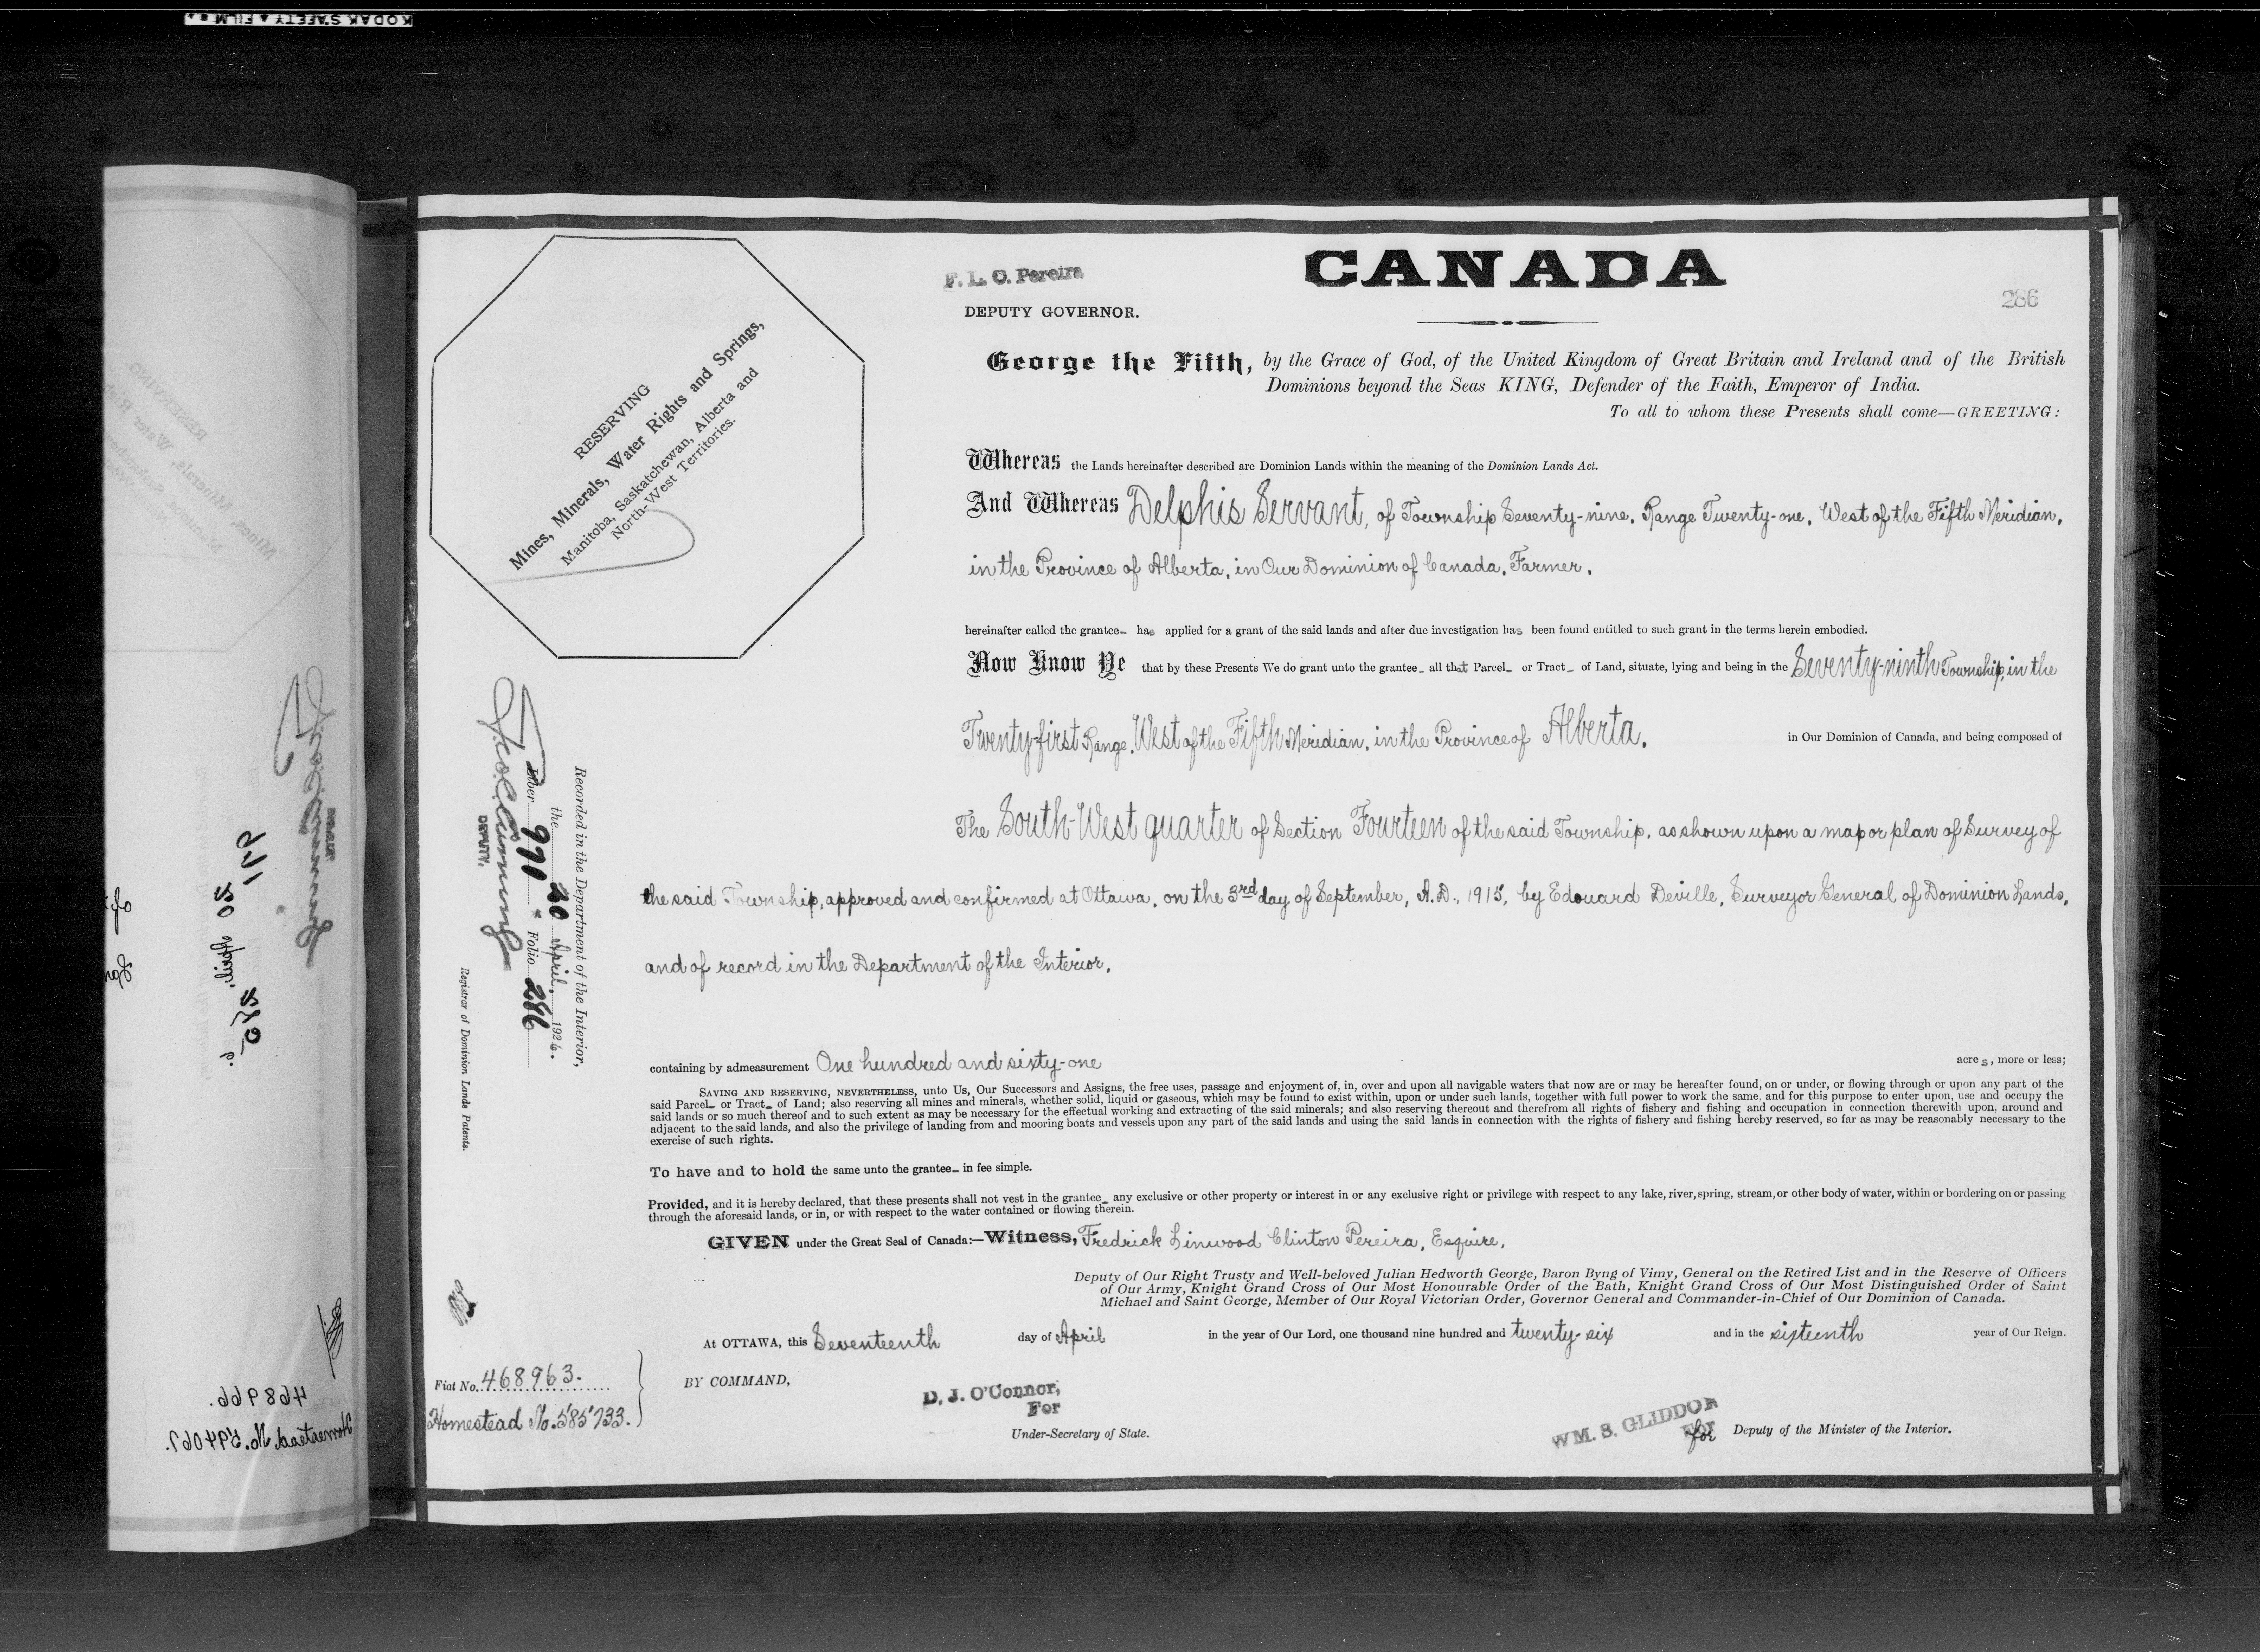 KODAK SAFETY FILM
F. L. C. Pereira
DEPUTY GOVERNOR.
CANADA
286
George the Fifth, by the Grace of God, of the United Kingdom of Great Britain and Ireland and of the British
Dominions beyond the Seas KING, Defender of the Faith, Emperor of India.
To all to whom these Presents shall come—GREETING:
RESERVING
Mines, Minerals, Water Rights and Springs,
Manitoba, Saskatchewan, Alberta and
North-West Territories.
Whereas the Lands hereinafter described are Dominion Lands within the meaning of the Dominion Lands Act.
And Whereas Delphis Servant, of Township Seventy-nine, Range Twenty-one, West of the Fifth Meridian,
in the Province of Alberta, in Our Dominion of Canada, Farmer,
hereinafter called the grantee has applied for a grant of the said lands and after due investigation has been found entitled to such grant in the terms herein embodied.
Now Know Ye that by these Presents We do grant unto the grantee all that Parcel or Tract of Land, situate, lying and being in the Seventy-ninth Township, in the
Twenty-first Range, West of the Fifth Meridian, in the Province of Alberta, in Our Dominion of Canada, and being composed of
The South-West quarter of Section Fourteen of the said Township, as shown upon a map or plan of Survey of
the said Township, approved and confirmed at Ottawa, on the 3rd day of September, A.D., 1915, by Edouard Deville, Surveyor General of Dominion Lands,
and of record in the Department of the Interior,
Recorded in the Department of the Interior,
the 20 April, 1926.
Liber 991 Folio 286
DEPUTY.
Registrar of Dominion Lands Patents.
containing by admeasurement One hundred and sixty-one acres, more or less;
SAVING AND RESERVING, NEVERTHELESS, unto Us, Our Successors and Assigns, the free uses, passage and enjoyment of, in, over and upon all navigable waters that now are or may be hereafter found, on or under, or flowing through or upon any part of the
said Parcel or Tract of Land; also reserving all mines and minerals, whether solid, liquid or gaseous, which may be found to exist within, upon or under such lands, together with full power to work the same, and for this purpose to enter upon, use and occupy the
said lands or so much thereof and to such extent as may be necessary for the effectual working and extracting of the said minerals; and also reserving thereout and therefrom all rights of fishery and fishing and occupation in connection therewith upon, around and
adjacent to the said lands, and also the privilege of landing from and mooring boats and vessels upon any part of the said lands and using the said lands in connection with the rights of fishery and fishing hereby reserved, so far as may be reasonably necessary to the
exercise of such rights.
To have and to hold the same unto the grantee in fee simple.
Provided, and it is hereby declared, that these presents shall not vest in the grantee any exclusive or other property or interest in or any exclusive right or privilege with respect to any lake, river, spring, stream, or other body of water, within or bordering on or passing
through the aforesaid lands, or in, or with respect to the water contained or flowing therein.
GIVEN under the Great Seal of Canada:—Witness, Fredrick Linwood Clinton Pereira, Esquire,
Deputy of Our Right Trusty and Well-beloved Julian Hedworth George, Baron Byng of Vimy, General on the Retired List and in the Reserve of Officers
of Our Army, Knight Grand Cross of Our Most Honourable Order of the Bath, Knight Grand Cross of Our Most Distinguished Order of Saint
Michael and Saint George, Member of Our Royal Victorian Order, Governor General and Commander-in-Chief of Our Dominion of Canada.
At OTTAWA, this Seventeenth day of April in the year of Our Lord, one thousand nine hundred and twenty-six and in the sixteenth year of Our Reign.
Fiat No. 468963.
Homestead No. 585733.
BY COMMAND,
D. J. O'Connor,
For
Under-Secretary of State.
WM. S. GLIDDON
For
Deputy of the Minister of the Interior.
468966.
Homestead No. 594067.